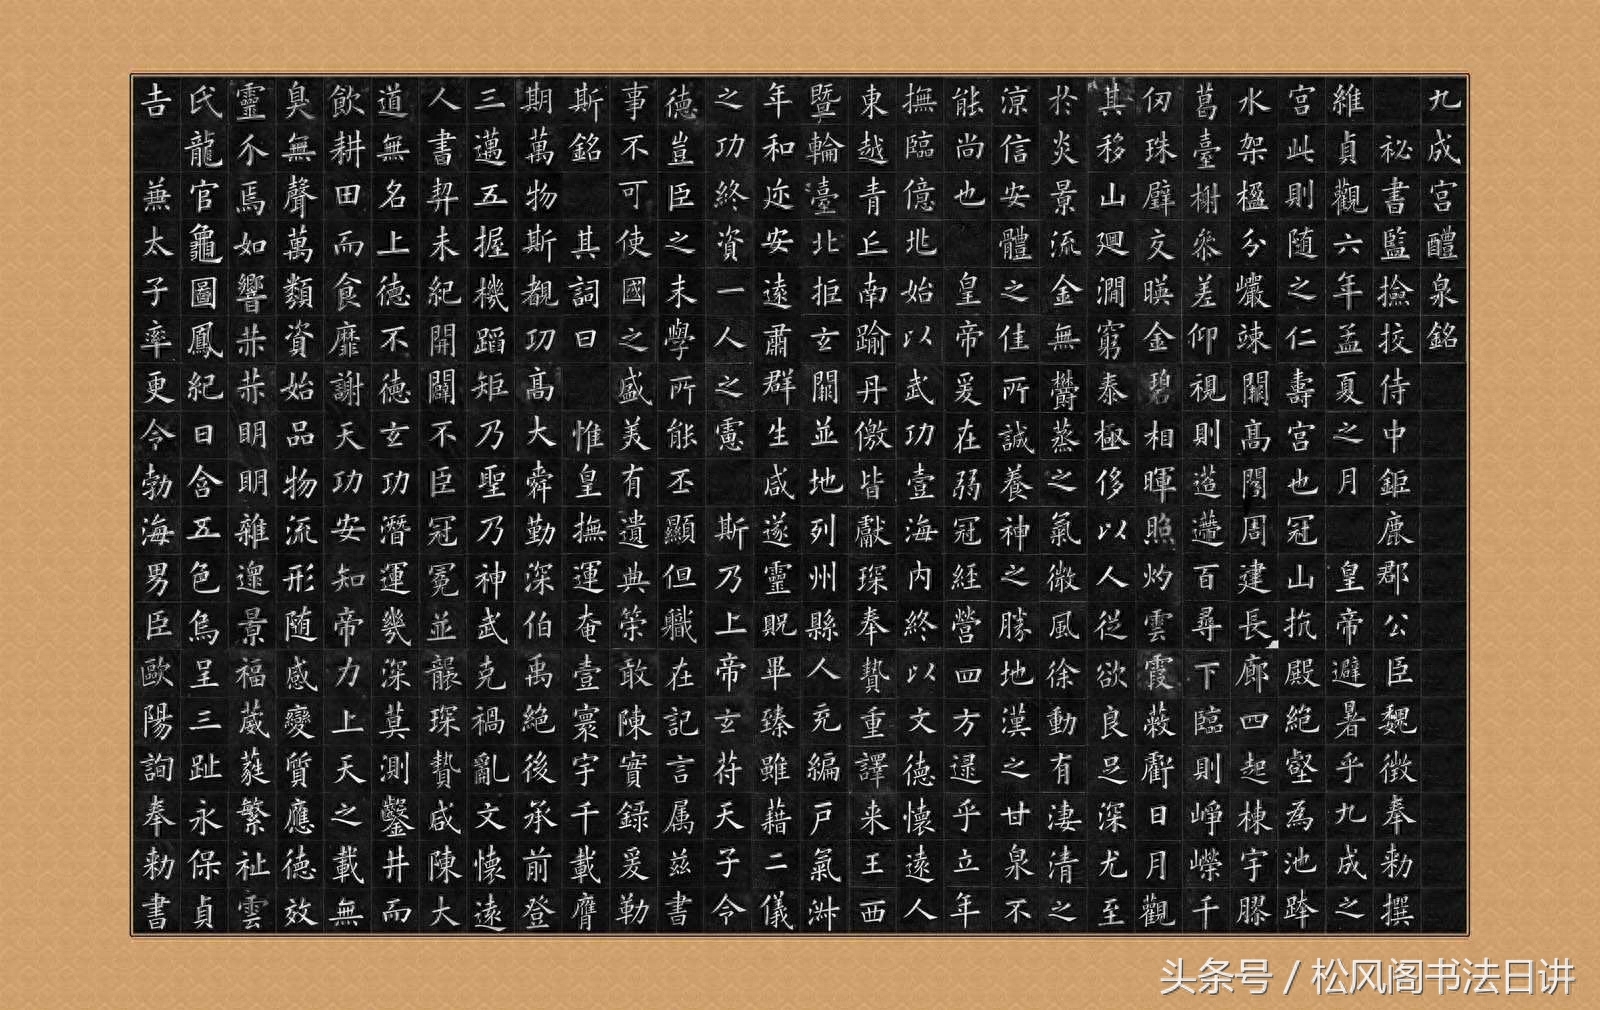 九成宮醴泉銘
祕書監撿挍侍中鉅鹿郡公臣魏徵奉勑撰
維貞觀六年孟夏之月 皇帝避暑乎九成之
宮此則随之仁壽宮也冠山抗殿絕壑為池跨
水架楹分巖竦闕高閣周建長廊四起棟宇膠
葛臺榭參差仰視則迢遰百尋下臨則崢嶸千
仞珠璧交暎金碧相暉照灼雲霞蔽虧日月觀
其移山廻澗窮泰極侈以人從欲良足深尤至
於炎景流金無鬱蒸之氣微風徐動有淒清之
涼信安體之佳所誠養神之勝地漢之甘泉不
能尚也 皇帝爰在弱冠經營四方逯乎立年
撫臨億兆始以武功壹海內終以文德懷遠人
東越青丘南踰丹儌皆獻琛奉贄重譯来王西
暨輪臺北拒玄闕並地列州縣人充編戶氣淋
年和迩安遠肅群生咸遂靈貺畢臻雖藉二儀
之功終資一人之慮 斯乃上帝玄符天子令
德豈臣之末學所能丕顯但職在記言属茲書
事不可使國之盛美有遺典策敢陳實錄爰勒
斯銘 其詞曰 惟皇撫運奄壹寰宇千載膺
期萬物斯覩功高大舜勤深伯禹絕後承前登
三邁五握機蹈矩乃聖乃神武克禍亂文懷遠
人書契未紀開闢不臣冠冕並襲琛贄咸陳大
道無名上德不德玄功潛運幾深莫測鑿井而
飲耕田而食靡謝天功安知帝力上天之載無
臭無聲萬類資始品物流形随感變質應德效
靈介焉如響赫赫明明雜遝景福葳蕤繁祉雲
氏龍官龜圖鳳紀日含五色烏呈三趾永保貞
吉 兼太子率更令勃海男臣歐陽詢奉勑書
头条号 / 松风阁书法日讲